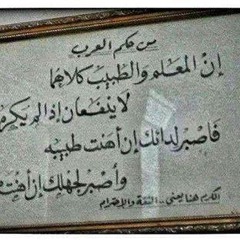 من حكم العرب
إن المعلم والطبيب كلاهما
لا ينفعان إذا لم يكرما
فاصبر لدائك إن أهنت طبيبه
وأصبر لجهلك إن أهنت
الكرم هنا يعني .. الثقة والإحترام